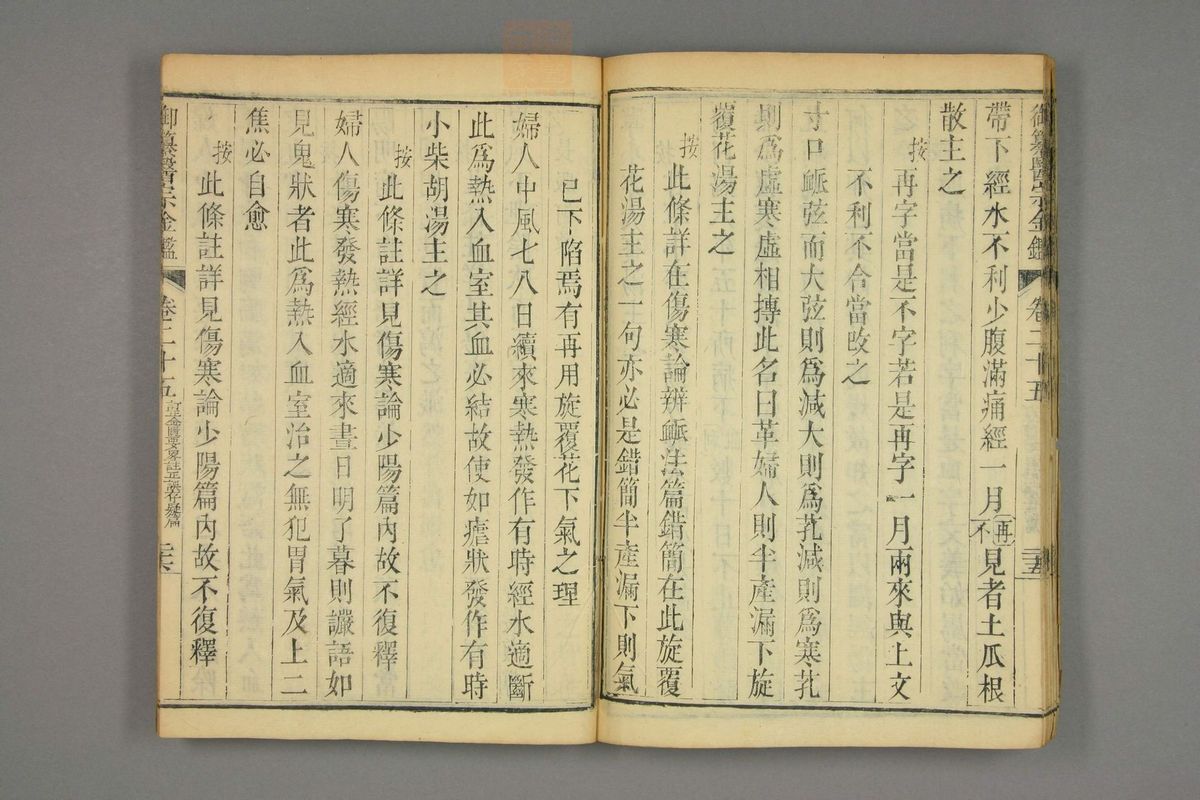 御纂醫宗金鑑 卷二十五 二十五
帶下經水不利少腹滿痛經一月再不見者土瓜根
散主之
按再字當是不字若是再字一月兩來與上文
不利不合當改之
寸口脈弦而大弦則爲減大則爲芤減則爲寒芤
則爲虛寒虛相搏此名曰革婦人則半產漏下旋
覆花湯主之
按此條詳在傷寒論辨脈法篇錯簡在此旋覆
花湯主之一句亦必是錯簡半產漏下則氣
已下陷焉有再用旋覆花下氣之理
婦人中風七八日續來寒熱發作有時經水適斷
此爲熱入血室其血必結故使如瘧狀發作有時
小柴胡湯主之
按此條註詳見傷寒論少陽篇內故不復釋
婦人傷寒發熱經水適來晝日明了暮則讝語如
見鬼狀者此爲熱入血室治之無犯胃氣及上二
焦必自愈
按此條註詳見傷寒論少陽篇內故不復釋
御纂醫宗金鑑 卷二十五 訂正金匱要畧註正誤存疑篇 二十六